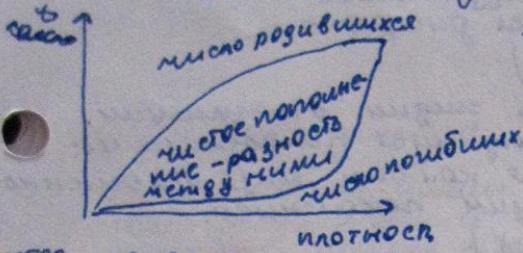 число родившихся
чистое пополне-
ние - разность
между ними
число погибших
плотность